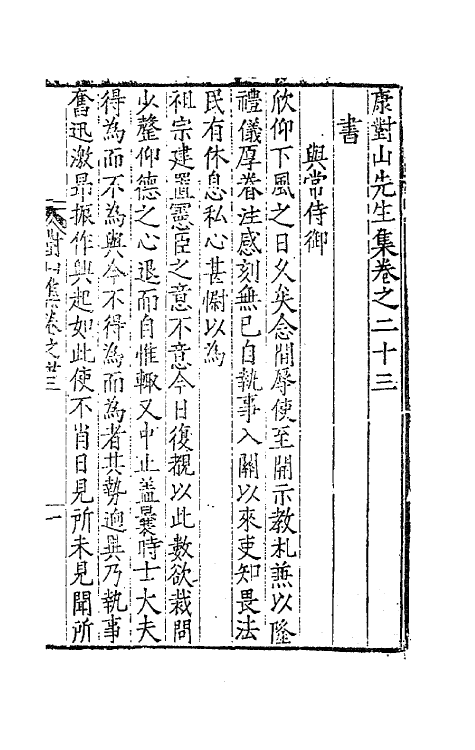 康對山先生集卷之二十三
書
與常侍御
欣仰下風之日久矣念間辱使至開示教札兼以隆
禮儀厚眷注感刻無已自執事入關以來吏知畏法
民有休息私心甚慰以為
祖宗建置憲臣之意不意今日復覩以此數欲裁問
少罄仰德之心退而自惟輒又中止蓋曩時士大夫
得為而不為與今不得為而為者其勢逈異乃執事
奮迅激昂振作興起如此使不肖日見所未見聞所
對山集卷之廿三
一